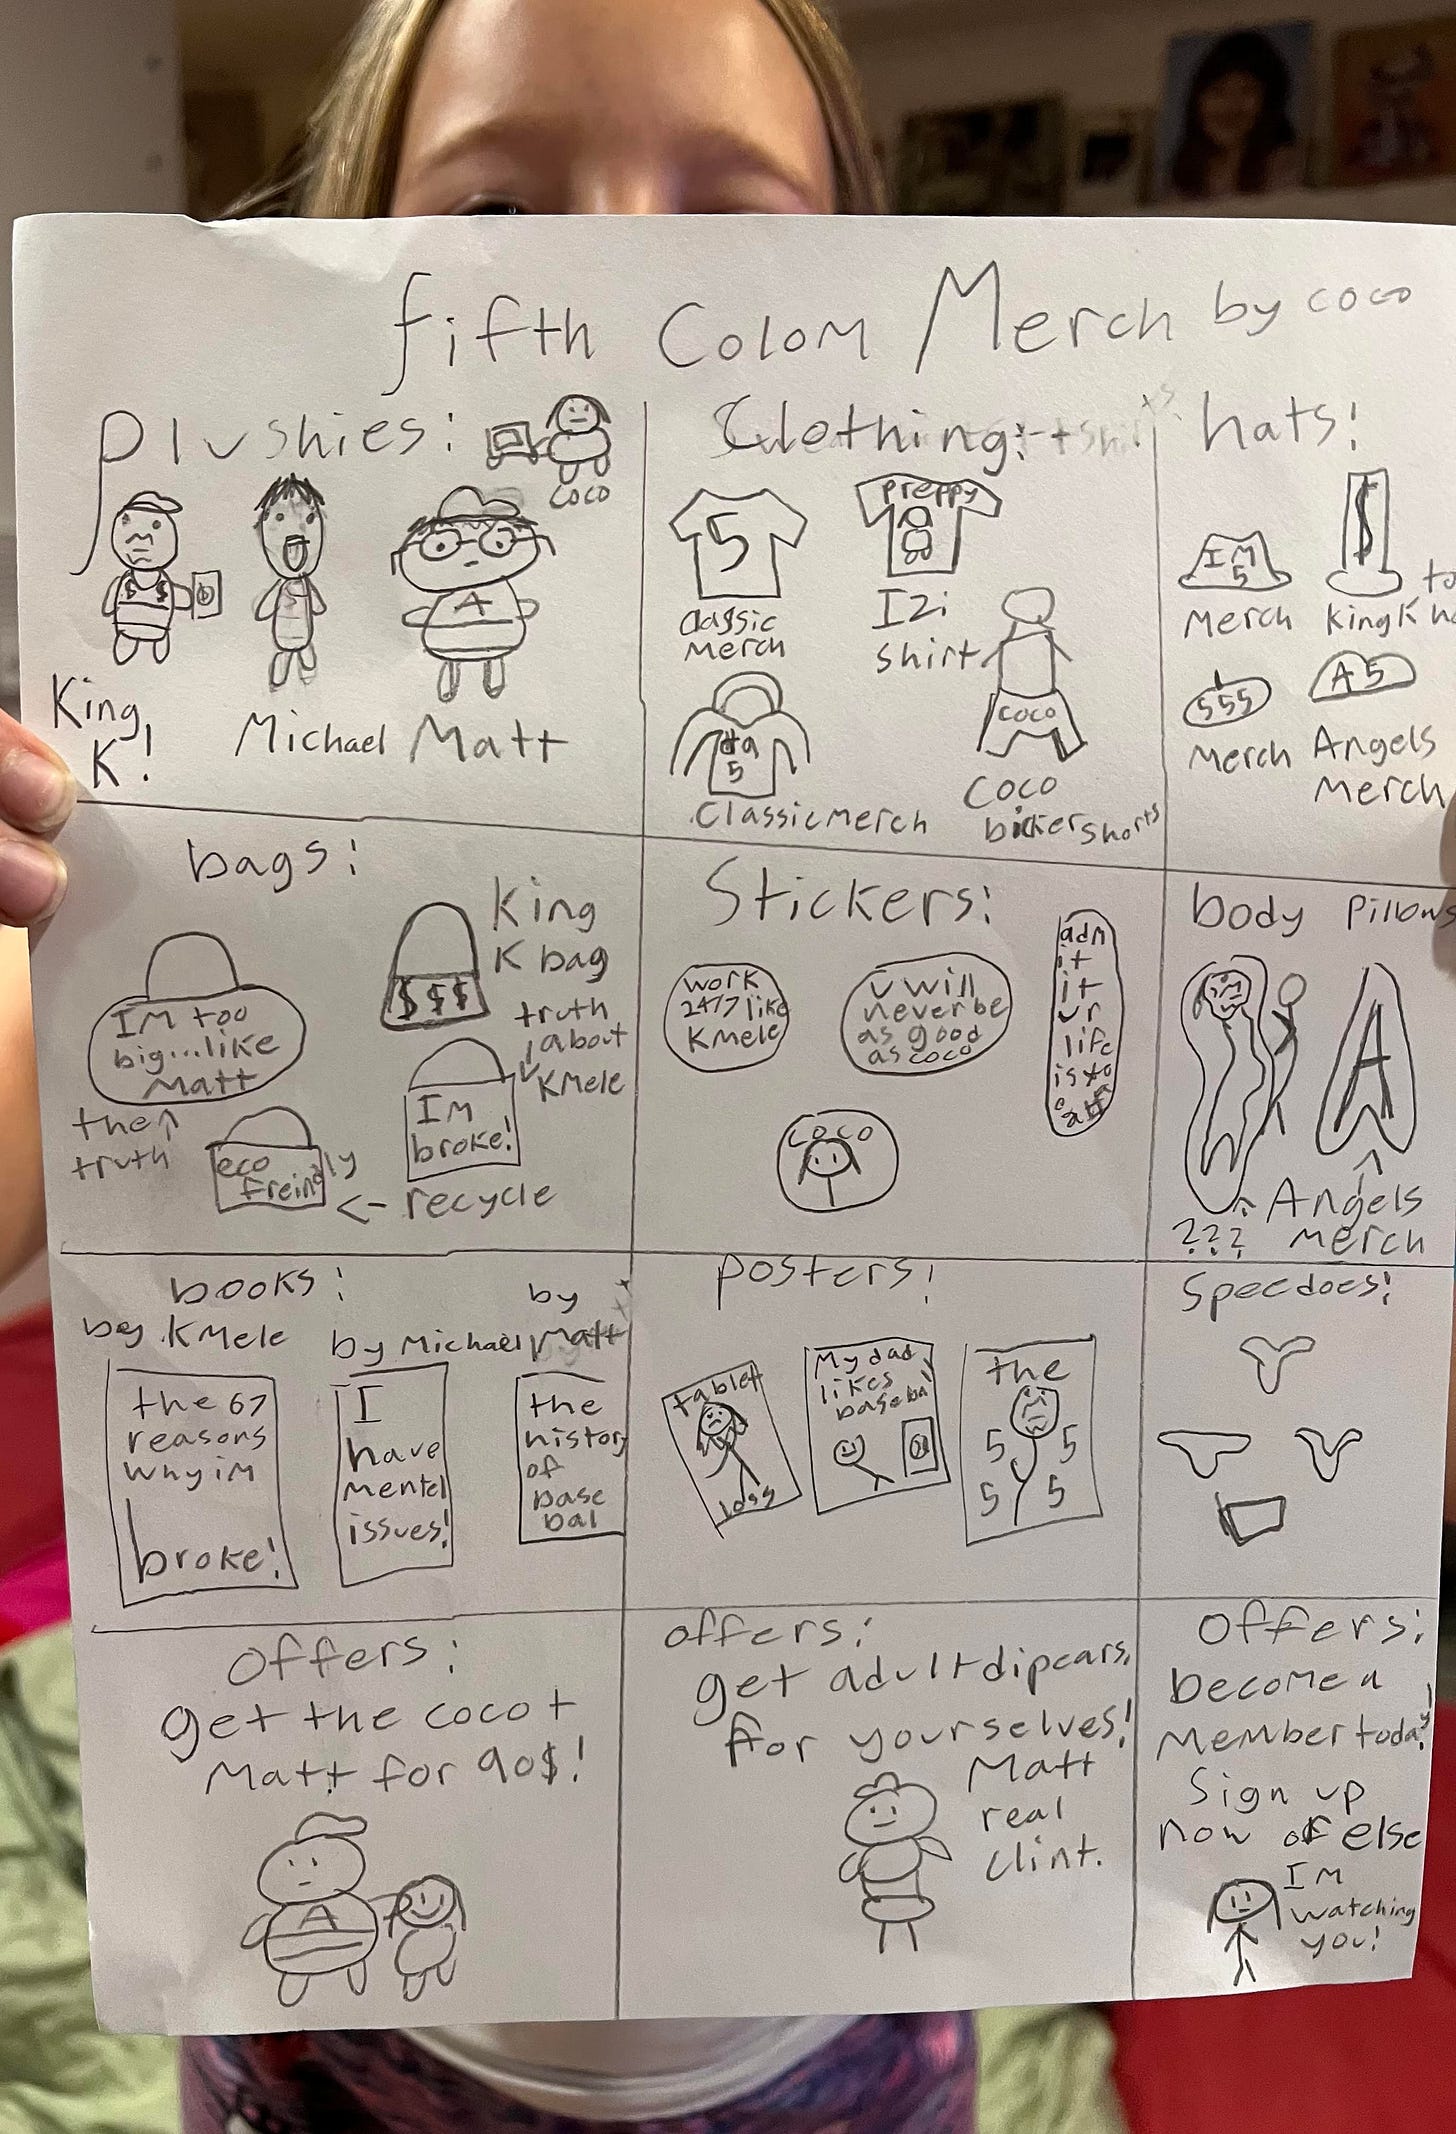 fifth Colom Merch by coco
Plushies:
coco
King
K!
Michael
A
Matt
Clothing:
5
classic
merch
preppy
Izi
shirt
5
Classic merch
coco
Coco
bicker shorts
hats!
IM
5
Merch
$
King K
555
Merch
A5
Angels
Merch
bags:
IM too
big...like
Matt
the
truth
$$$
King
K bag
truth
about
KMele
IM
broke!
eco
freindly
<- recycle
Stickers:
work
24/7 like
KMele
U will
never be
as good
as coco
adm
it
it
ur
life
coco
body Pillows
???
A
Angels
merch
books:
by KMele
the 67
reasons
why im
broke!
by Michael
I
have
mentel
issues!
by
Matt
the
history
of
base
bal
posters!
tablet
loss
My dad
likes
basebal
the
5 5
5 5
Speedoes!
Offers:
get the coco +
Matt for 90$!
A
offers:
get adult dipears,
for yourselves!
Matt
real
clint.
Offers:
become a
Member today!
Sign up
now or else
IM
watching
you!